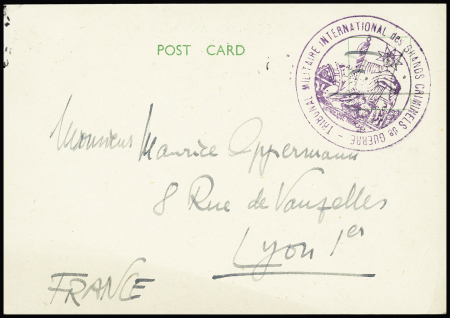 POST CARD
TRIBUNAL MILITAIRE INTERNATIONAL des GRANDS CRIMINELS de GUERRE -
Monsieur Maurice Oppermann
8 Rue de Vauzelles
Lyon 1er
FRANCE